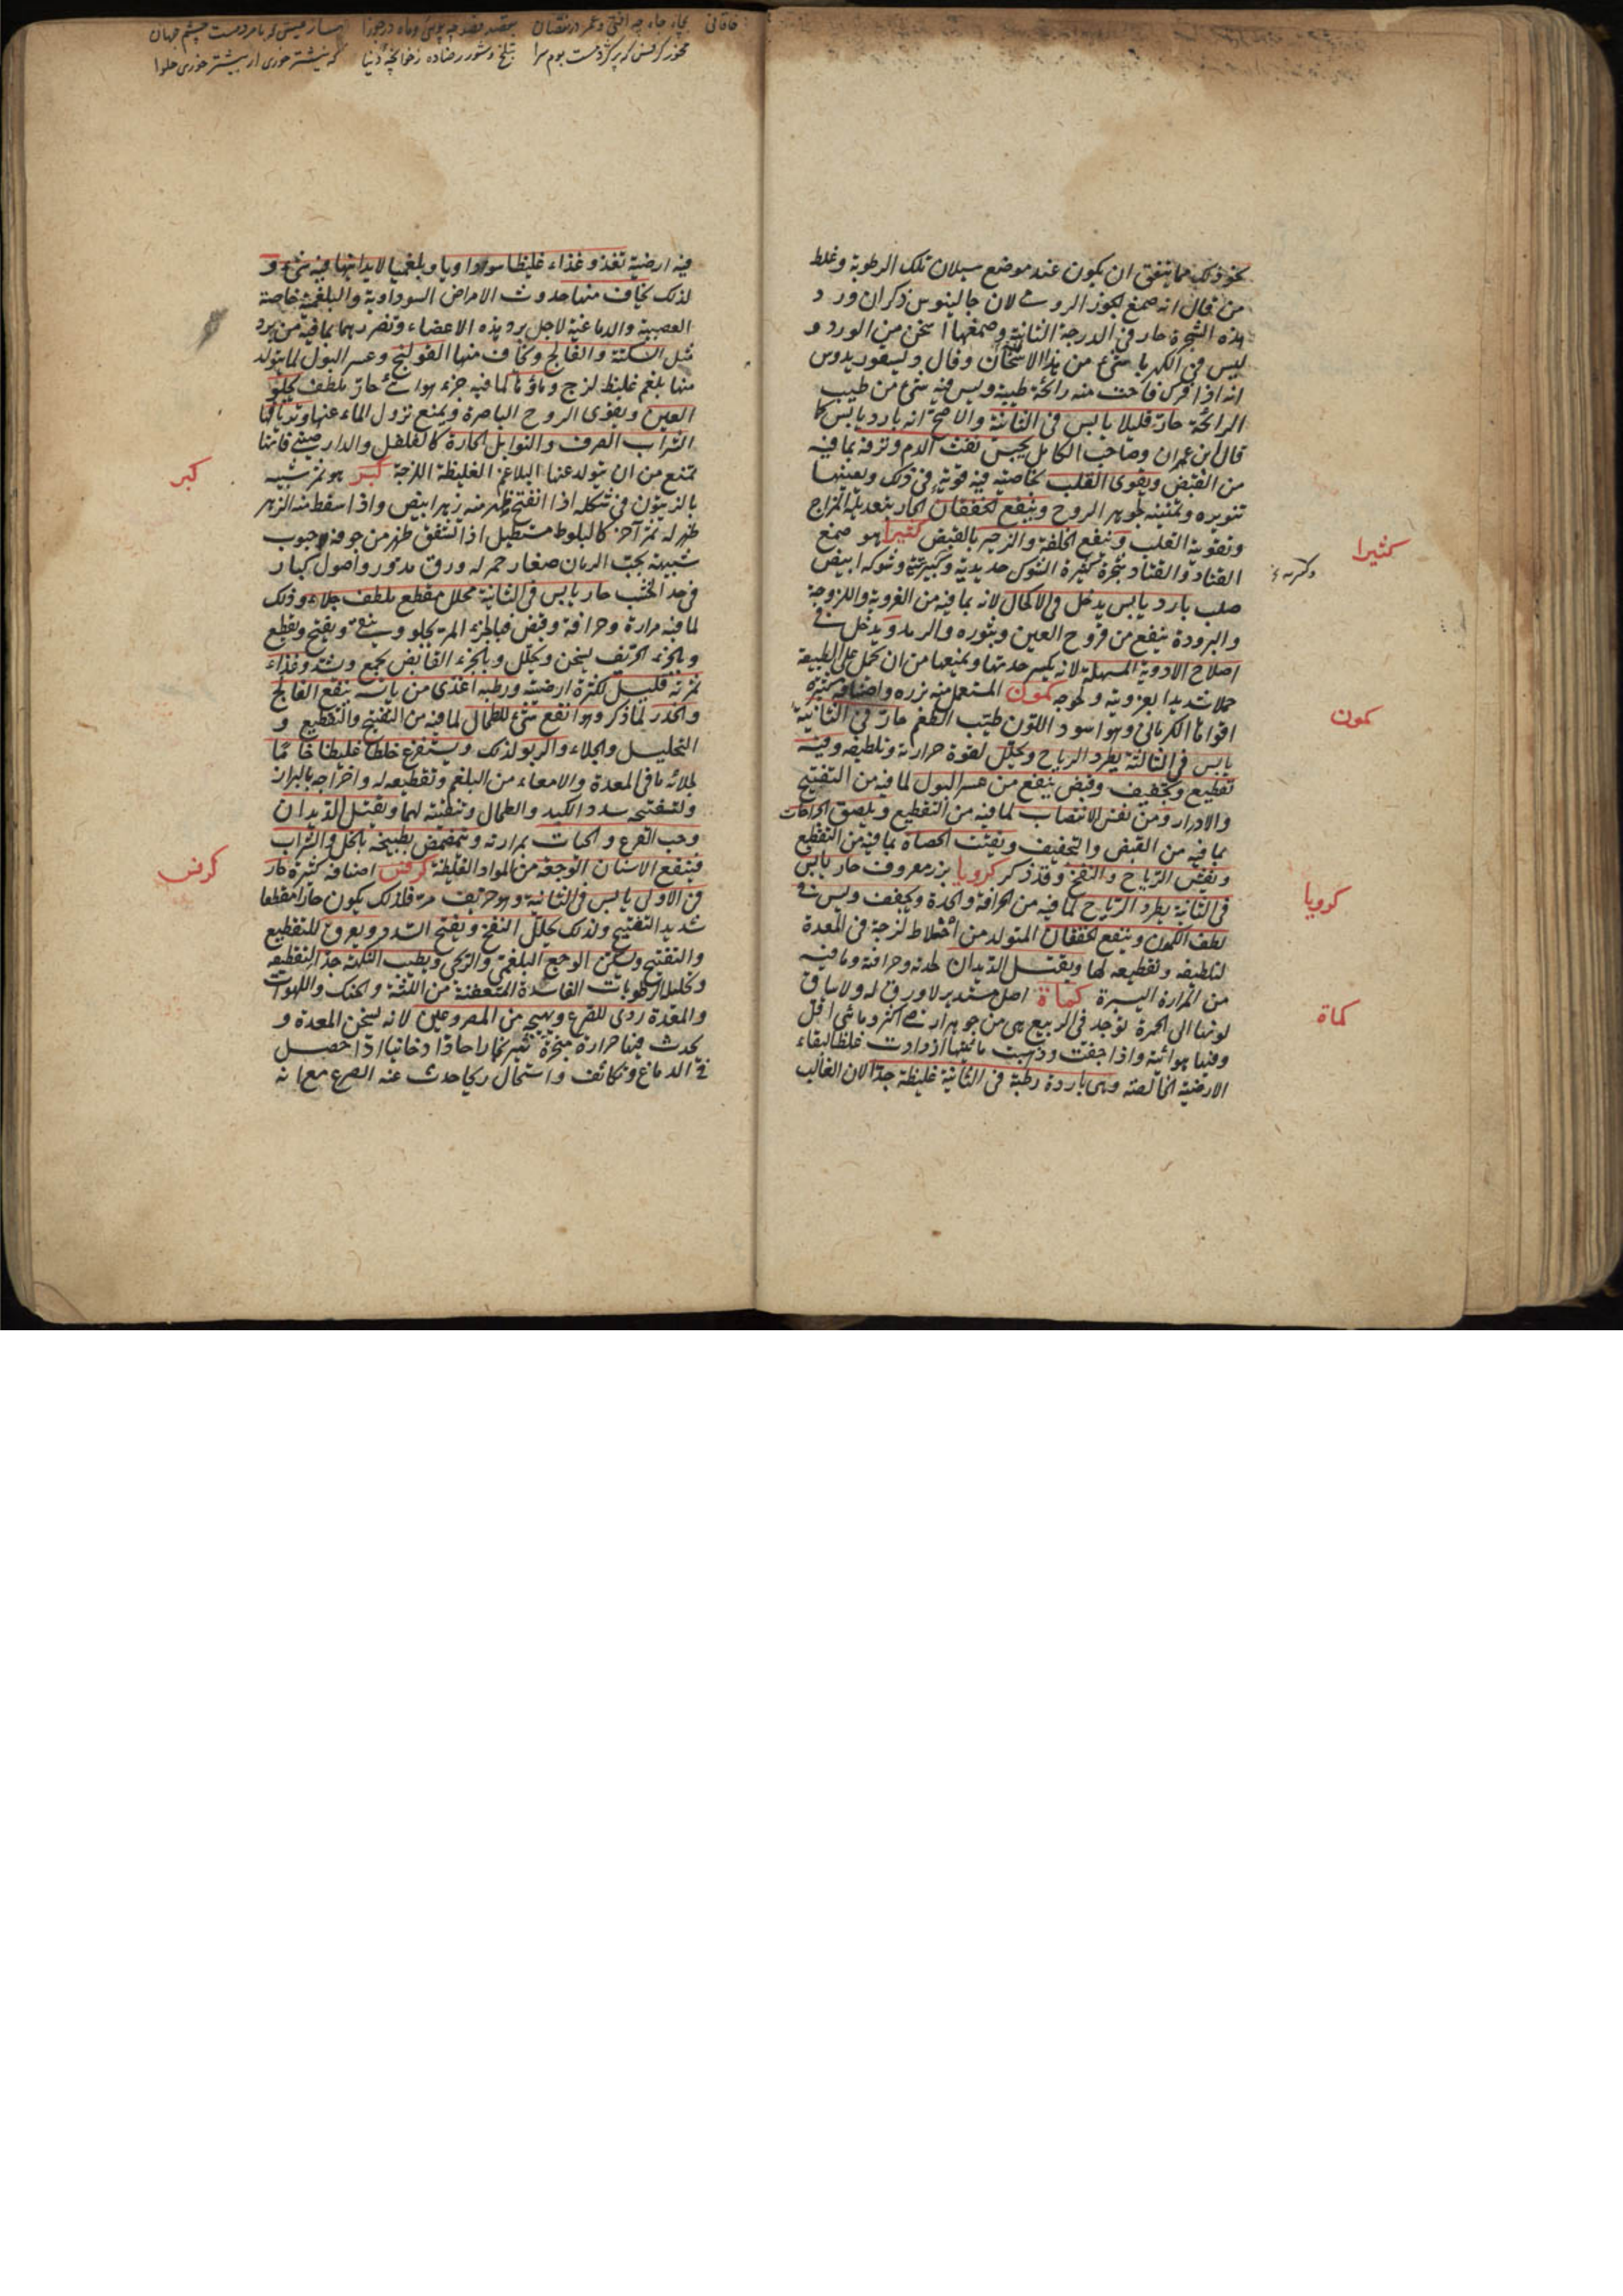 نحو ذلك مما يتفق ان يكون عند موضع سيلان تلك الرطوبة وغلط
من قال انه صمغ الجوز الرومى لان جالينوس ذكر ان ورد
هذه الشجرة حار فى الدرجة الثانية وصمغها اسخن من الورد و
ليس فى الكهربا شىء من هذا الاسخان وقال ديسقوريدوس
انه اذا فرك فاحت منه رائحة طيبة وليس فيه شىء من طيب
الرائحة حار قليلا يابس فى الثانية والاصح انه بارد يابس كما
قال ابن عمران وصاحب الكامل يحبس نفث الدم ونزفه بما فيه
من القبض ويقوى القلب بخاصية فيه قوية فى ذلك ويعينها
تنويره وتمتينه لجوهر الروح وينفع الخفقان الحار بتعديله المزاج
وتقوية القلب وينفع الخلفة والزحير بالقبض كثيرا هو صمغ
القتاد والقتاد شجرة كثيرة الشوك حديدية وشوكه ابيض
صلب بارد يابس يدخل فى الاكحال لانه بما فيه من الغروية واللزوجة
والبرودة ينفع من قروح العين وبثوره والرمد ويدخل فى
اصلاح الادوية المسهلة لانه يكسر حدتها ويمنعها من ان تحمل على الطبيعة
حملا شديدا بغرويته ولحوجه كمون المستعمل منه بزره واصنافه كثيرة
اقواها الكرمانى وهو اسود اللون طيب الطعم حار فى الثانية
يابس فى الثالثة يطرد الرياح ويحلل لقوة حرارته وتلطيفه وفيه
تقطيع وتجفيف وقبض ينفع من عسر البول لما فيه من التفتيح
والادرار ومن نفس الانتصاب لما فيه من التقطيع ويلصق الجراحات
بما فيه من القبض والتجفيف ويفتت الحصاة بما فيه من التقطيع
ونفش الرياح والنفخ وقد ذكر كرويا بزر معروف حار يابس
فى الثانية يطرد الرياح لما فيه من الحرافة والحدة ويجفف وليس فى
لطف الكمون وينفع الخفقان المتولد من اخلاط لزجة فى المعدة
لتلطيفه وتقطيعه لها ويقتل الديدان لحدته وحرافته وما فيه
من المرارة اليسيرة كماة اصل مستدير لا ورق له ولا ساق
لونها الى الحمرة توجد فى الربيع هى من جوهر ارضى اكثر ومائى اقل
وفيها هوائية واذا جفت وذهبت مائيتها ازدادت غلظا لبقاء
الارضية الخالصة وهى باردة رطبة فى الثانية غليظة جدا لان الغالب
كثيرا
كمون
كرويا
كماة
خاقانى
فيه ارضية تغذو غذاء غليظا سوداويا وبلغميا لا يدانيها فيه شىء و
لذلك يخاف منها حدوث الامراض السوداوية والبلغمية خاصة
العصبية والدماغية لاجل برد هذه الاعضاء وتضررهما بما فيه من برد
مثل السكتة والفالج ويخاف منها القولنج وعسر البول لما يتولد
منها بلغم غليظ لزج وماؤها كما فيه جزء هوائى حار يلطف يجلو
العين ويقوى الروح الباصرة ويمنع نزول الماء عنها وترياقها
الشراب الصرف والتوابل الحارة كالفلفل والدارصينى فانها
تمنع من ان يتولد عنها البلاغم الغليظة اللزجة كبر هو ثمر شبيه
بالزيتون فى شكله اذا انفتح ظهر منه زهر ابيض واذا سقط منه الزهر
ظهر له ثمر آخر كالبلوط مستطيل اذا انشقق ظهر من جوفه حبوب
شبيهة بحب الرمان صغار حمر له ورق مدور واصول كبار
فى حد الخشب حار يابس فى الثانية محلل مقطع ملطف جلاء وذلك
لما فيه مرارة وحرافة وقبض فبالجزء المر يجلو وينقى ويفتح ويقطع
وبالجزء الحريف يسخن ويحلل وبالجزء القابض يجمع ويشد وغذاء
ثمرته قليل لكثرة ارضيته ورطبه اغذى من يابسه ينفع الفالج
والخدر لما ذكر وهو انفع شىء للطحال لما فيه من التفتيح والتقطيع و
التحليل والجلاء والربو لذلك ويستفرغ خلطا غليظا خاما
لجلائه ما فى المعدة والامعاء من البلغم وتقطيعه له واخراجه بالبراز
ولتفتيحه سدد الكبد والطحال وتنقيته لهما ويقتل الديدان
وحب القرع والحيات بمرارته ويتمضمض بطبيخه بالخل والشراب
فينفع الاسنان الوجعة من المواد الغليظة كرفس اصنافه كثيرة حار
فى الاولى يابس فى الثانية وهو حريف مر فلذلك يكون حارا مقطعا
شديد التفتيح ولذلك يحلل النفخ ويفتح السدد ويعرق للتقطيع
والتفتيح ويسكن الوجع البلغمى والريحى ويطيب النكهة جدا لتقطيعه
وتحليل الرطوبات الفاسدة المتعفنة من اللثة والحنك واللهوات
والمعدة ردى للصرع ويهيجه من المصروعين لانه يسخن المعدة و
يحدث فيها حرارة مبخرة تثير بخارا حادا دخانيا اذا حصل
فى الدماغ وتكاثف واستحال ريحا حدث عنه الصرع مع انه
كبر
كرفس